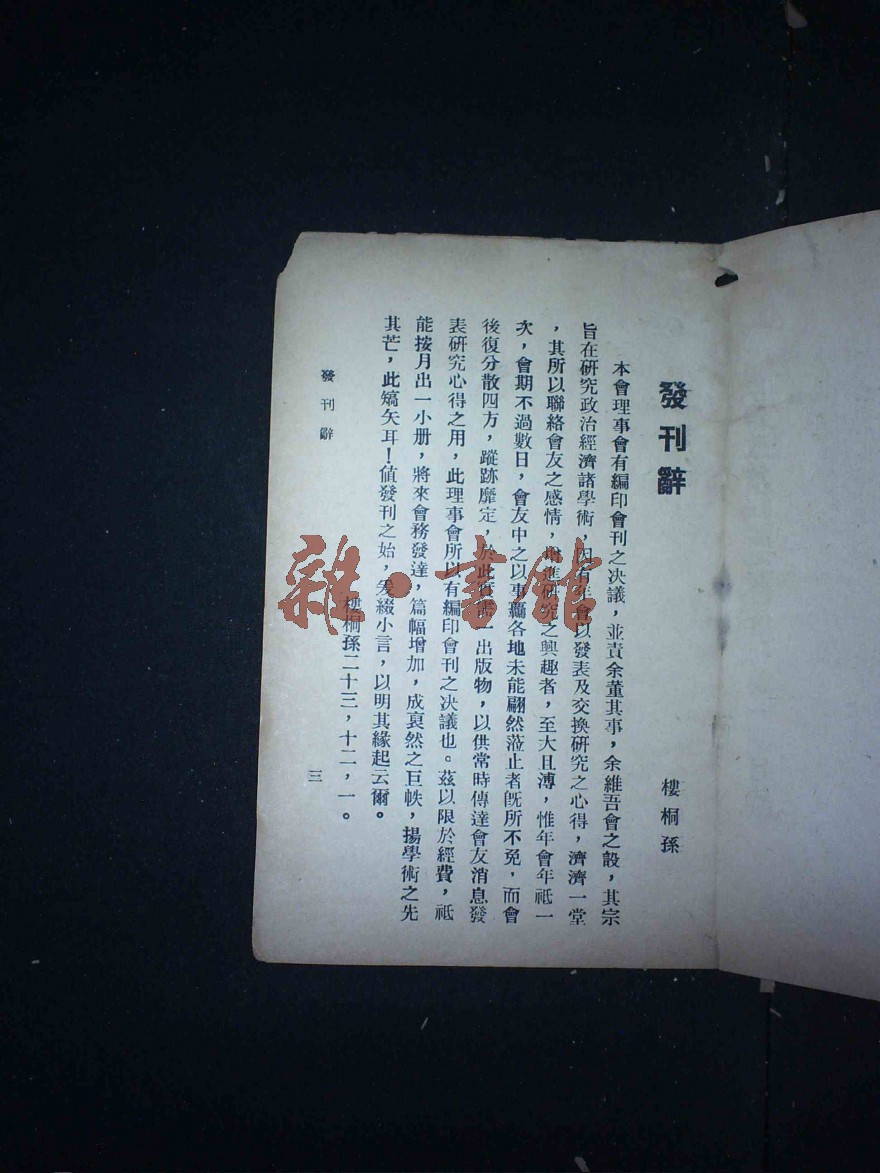 發刊辭
樓桐孫
本會理事會有編印會刊之決議，並責余董其事，余維吾會之設，其宗
旨在研究政治經濟諸學術，因有年會以發表及交換研究之心得，濟濟一堂
，其所以聯絡會友之感情，增進研究之興趣者，至大且溥，惟年會年祗一
次，會期不過數日，會友中之以事羈各地未能翩然蒞止者旣所不免，而會
後復分散四方，蹤跡靡定，於此 一出版物，以供常時傳達會友消息發
表研究心得之用，此理事會所以有編印會刊之決議也。茲以限於經費，祗
能按月出一小册，將來會務發達，篇幅增加，成裒然之巨帙，揚學術之先
其芒，此嚆矢耳！值發刊之始，爰綴小言，以明其緣起云爾。
樓桐孫二十三，十二，一。
發刊辭
三
雜·書館